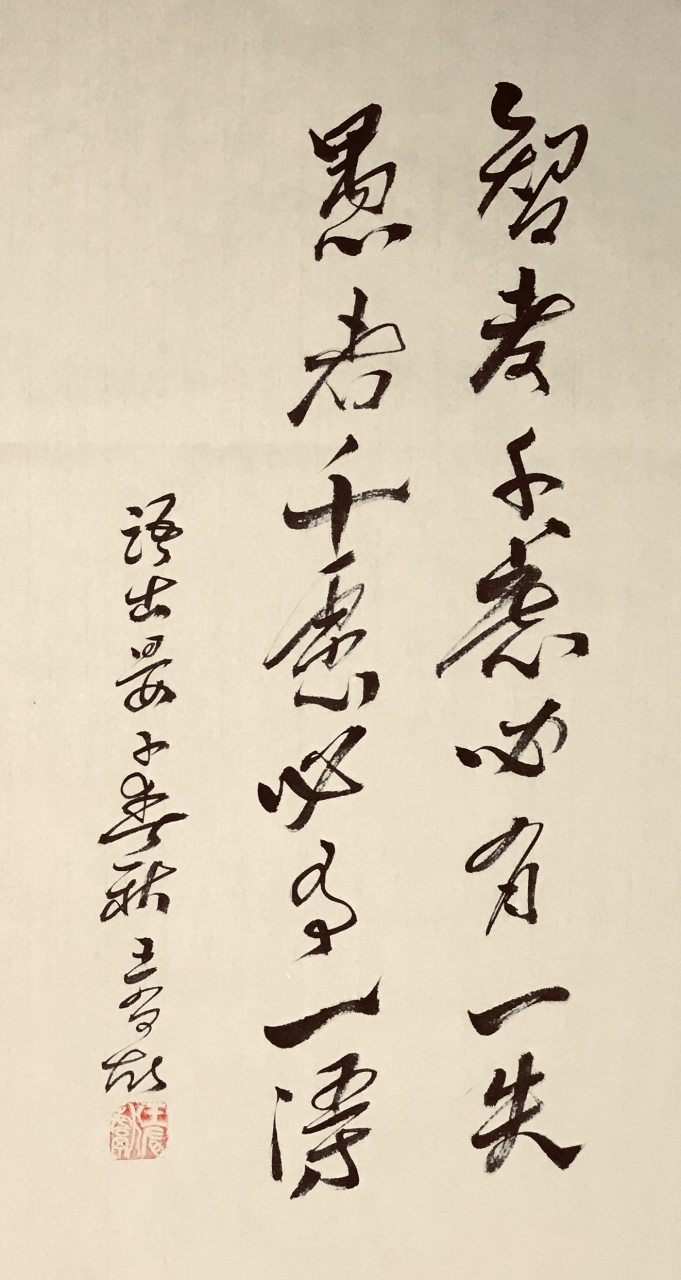 智者千慮必有一失
愚者千慮必有一得
語出晏子春秋